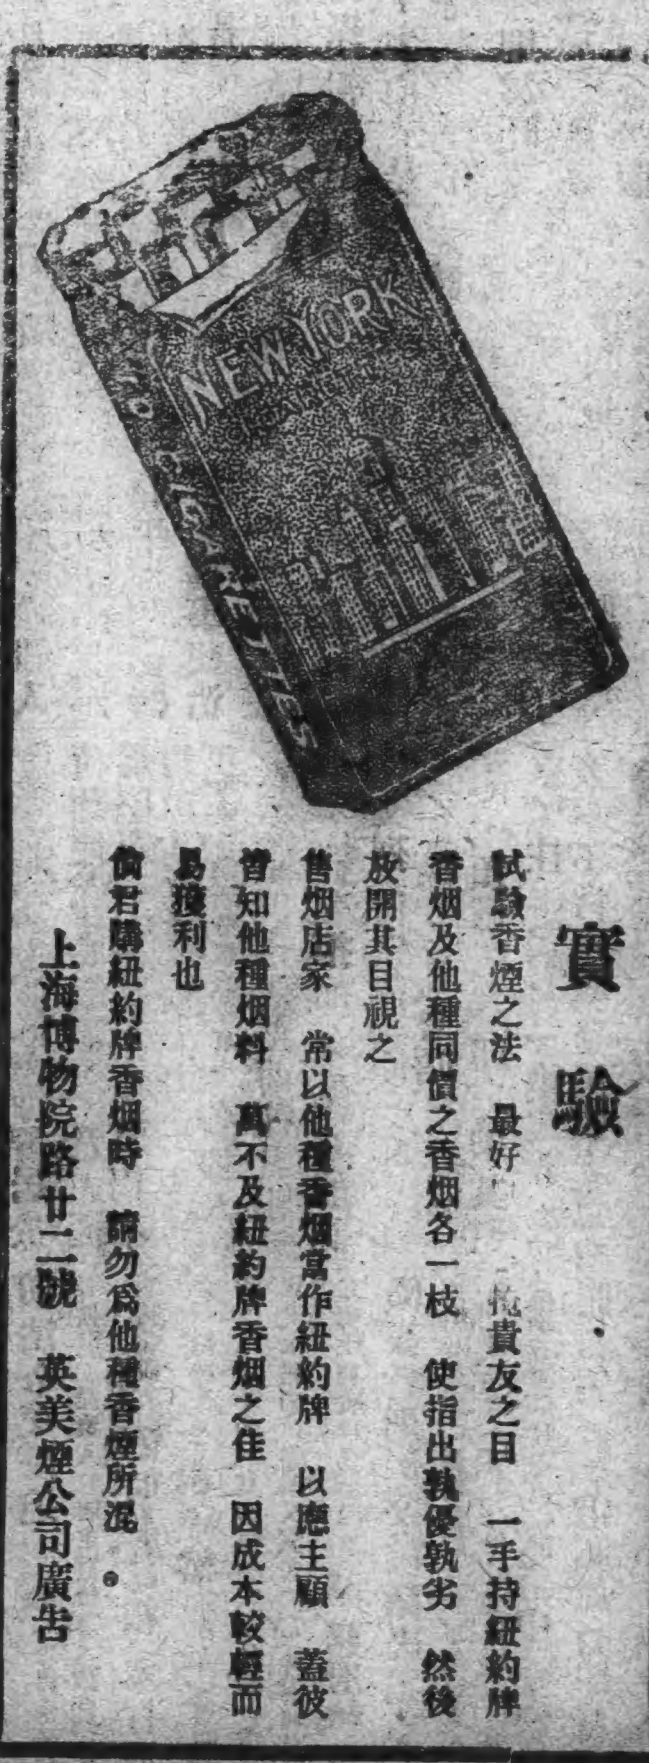 NEW YORK
CIGARETTES
10 CIGARETTES
實驗
試驗香煙之法 最好 掩貴友之目 一手持紐約牌
香烟及他種同價之香烟各一枝 使指出孰優孰劣 然後
放開其目視之
售烟店家 常以他種香烟當作紐約牌 以應主顧 蓋彼
皆知他種烟料 萬不及紐約牌香烟之佳 因成本較輕而
易獲利也
倘君購紐約牌香烟時 請勿爲他種香煙所混
上海博物院路廿二號 英美煙公司廣告